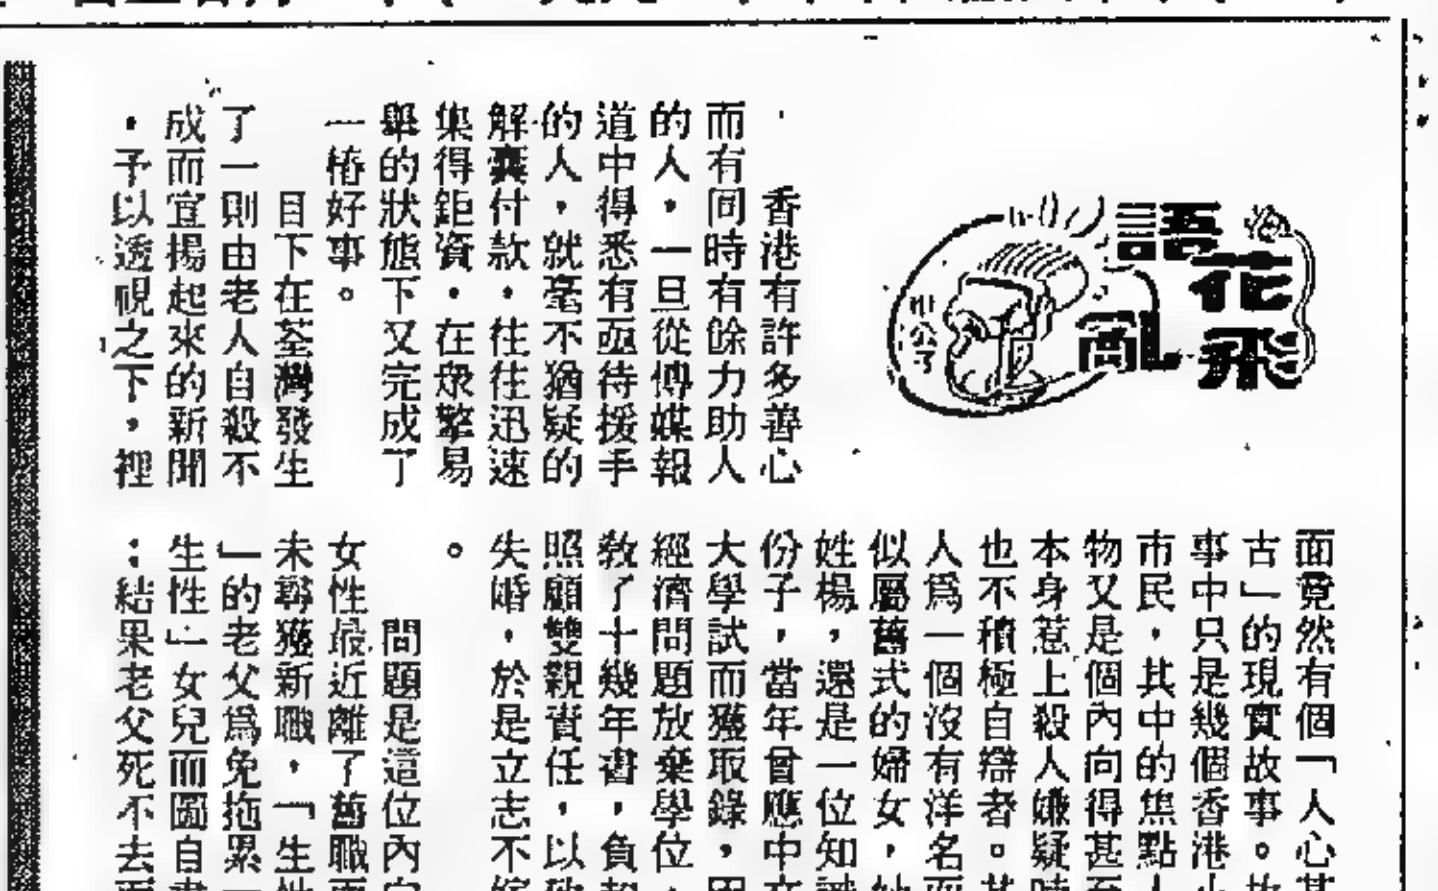 語花亂飛
香港有許多善心
而有同時有餘力助人
的人，一旦從傳媒報
道中得悉有亟待援手
的人，就毫不猶疑的
解囊付款，往往迅速
集得鉅資，在衆擎易
舉的狀態下又完成了
一樁好事。
目下在荃灣發生
了一則由老人自殺不
成而宣揚起來的新聞
，予以透視之下，裡
面竟然有個「人心甚
古」的現實故事。故
事中只是幾個香港小
市民，其中的焦點人
物又是個內向得甚至
本身惹上殺人嫌疑時
也不積極自辯者。其
人爲一個沒有洋名而
似屬舊式的婦女，她
姓楊，還是一位知識
份子，當年曾應中文
大學試而獲取錄，因
經濟問題放棄學位，
敎了十幾年書，負起
照顧雙親責任，以致
失婚，於是立志不嫁
。
問題是這位內向
女性最近離了舊職而
未尋獲新職，「生性
」的老父爲免拖累「
生性」女兒而圖自盡
：結果老父死不去而